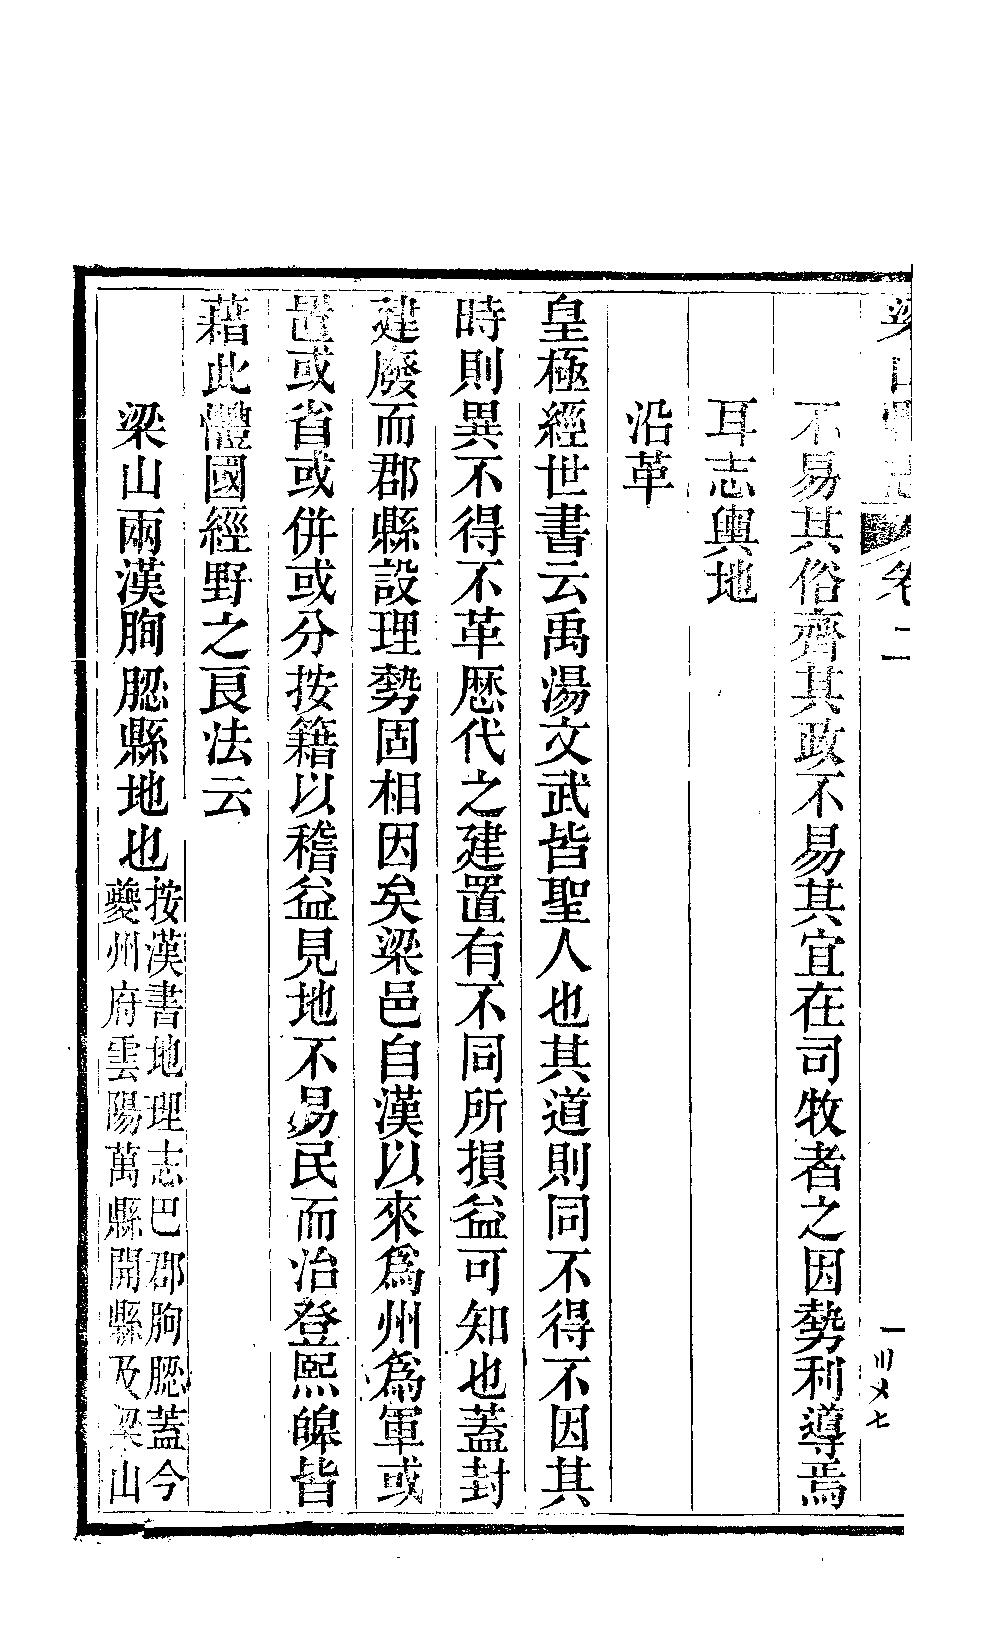 梁山縣志 卷二
不易其俗齊其政不易其宜在司牧者之因勢利導焉
耳志輿地
沿革
皇極經世書云禹湯文武皆聖人也其道則同不得不因其
時則異不得不革歷代之建置有不同所損益可知也蓋封
建廢而郡縣設理勢固相因矣梁邑自漢以來爲州爲軍或
置或省或併或分按籍以稽益見地不易民而治登熙皞皆
藉此體國經野之良法云
梁山兩漢朐䏰縣地也
按漢書地理志巴郡朐䏰蓋今
夔州府雲陽萬縣開縣及梁山